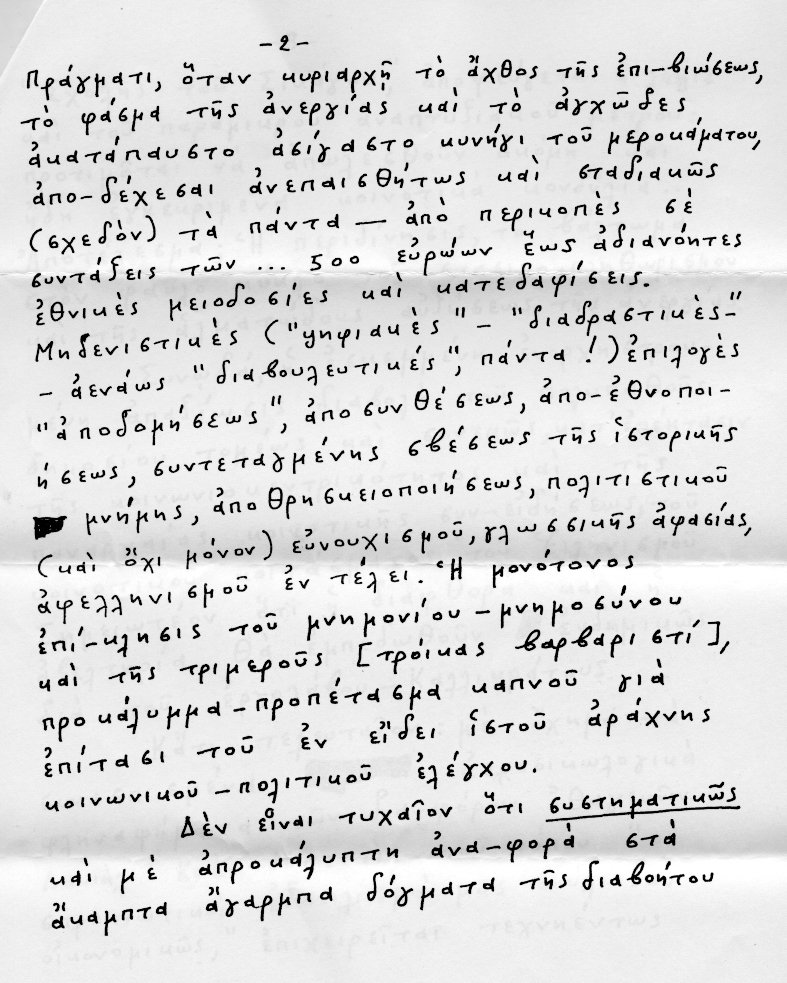 -2-
Πράγματι, ὅταν κυριαρχῇ τὸ ἄχθος τῆς ἐπι-βιώσεως,
τὸ φάσμα τῆς ἀνεργίας καὶ τὸ ἀγχῶδες
ἀκατάπαυστο ἀσίγαστο κυνήγι τοῦ μεροκάματου,
ἀπο-δέχεσαι ἀνεπαισθήτως καὶ σταδιακῶς
(σχεδὸν) τὰ πάντα — ἀπὸ περικοπὲς σὲ
συντάξεις τῶν ... 500 εὐρώων ἕως ἀδιανόητες
ἐθνικὲς μειοδοσίες καὶ κατεδαφίσεις.
Μηδενιστικὲς ("ψηφιακὲς" - "διαδραστικὲς-"
- ἀενάως "διαβουλευτικές", πάντα!) ἐπιλογὲς
"ἀποδομήσεως", ἀποσυνθέσεως, ἀπο-ἐθνοποι-
ήσεως, συντεταγμένης σβέσεως τῆς ἱστορικῆς
μνήμης, ἀποθρησκειοποιήσεως, πολιτιστικοῦ
(καὶ ὄχι μόνον) εὐνουχισμοῦ, γλωσσικῆς ἀφασίας,
ἀφελληνισμοῦ ἐν τέλει. Ἡ μονότονος
ἐπί-κλησις τοῦ μνημονίου - μνημοσύνου
καὶ τῆς τριμεροῦς [τρόικας βαρβαριστί],
προκάλυμμα - προπέτασμα καπνοῦ γιὰ
ἐπίτασι τοῦ ἐν εἴδει ἱστοῦ ἀράχνης
κοινωνικοῦ - πολιτικοῦ ἐλέγχου.
Δὲν εἶναι τυχαῖον ὅτι συστηματικῶς
καὶ μὲ ἀπροκάλυπτη ἀνα-φορὰ στὰ
ἄκαμπτα ἄγαρμπα δόγματα τῆς διαβοήτου